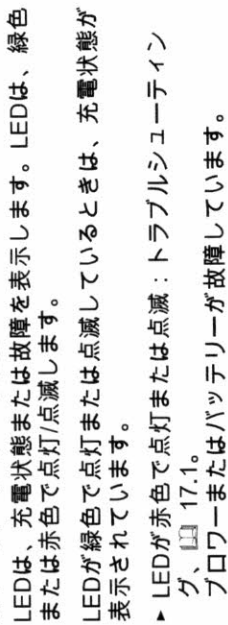 LEDは、充電状態または故障を表示します。LEDは、緑色
または赤色で点灯/点滅します。
LEDが緑色で点灯または点滅しているときは、充電状態が
表示されています。
▸ LEDが赤色で点灯または点滅：トラブルシューティン
グ、📖 17.1。
ブロワーまたはバッテリーが故障しています。